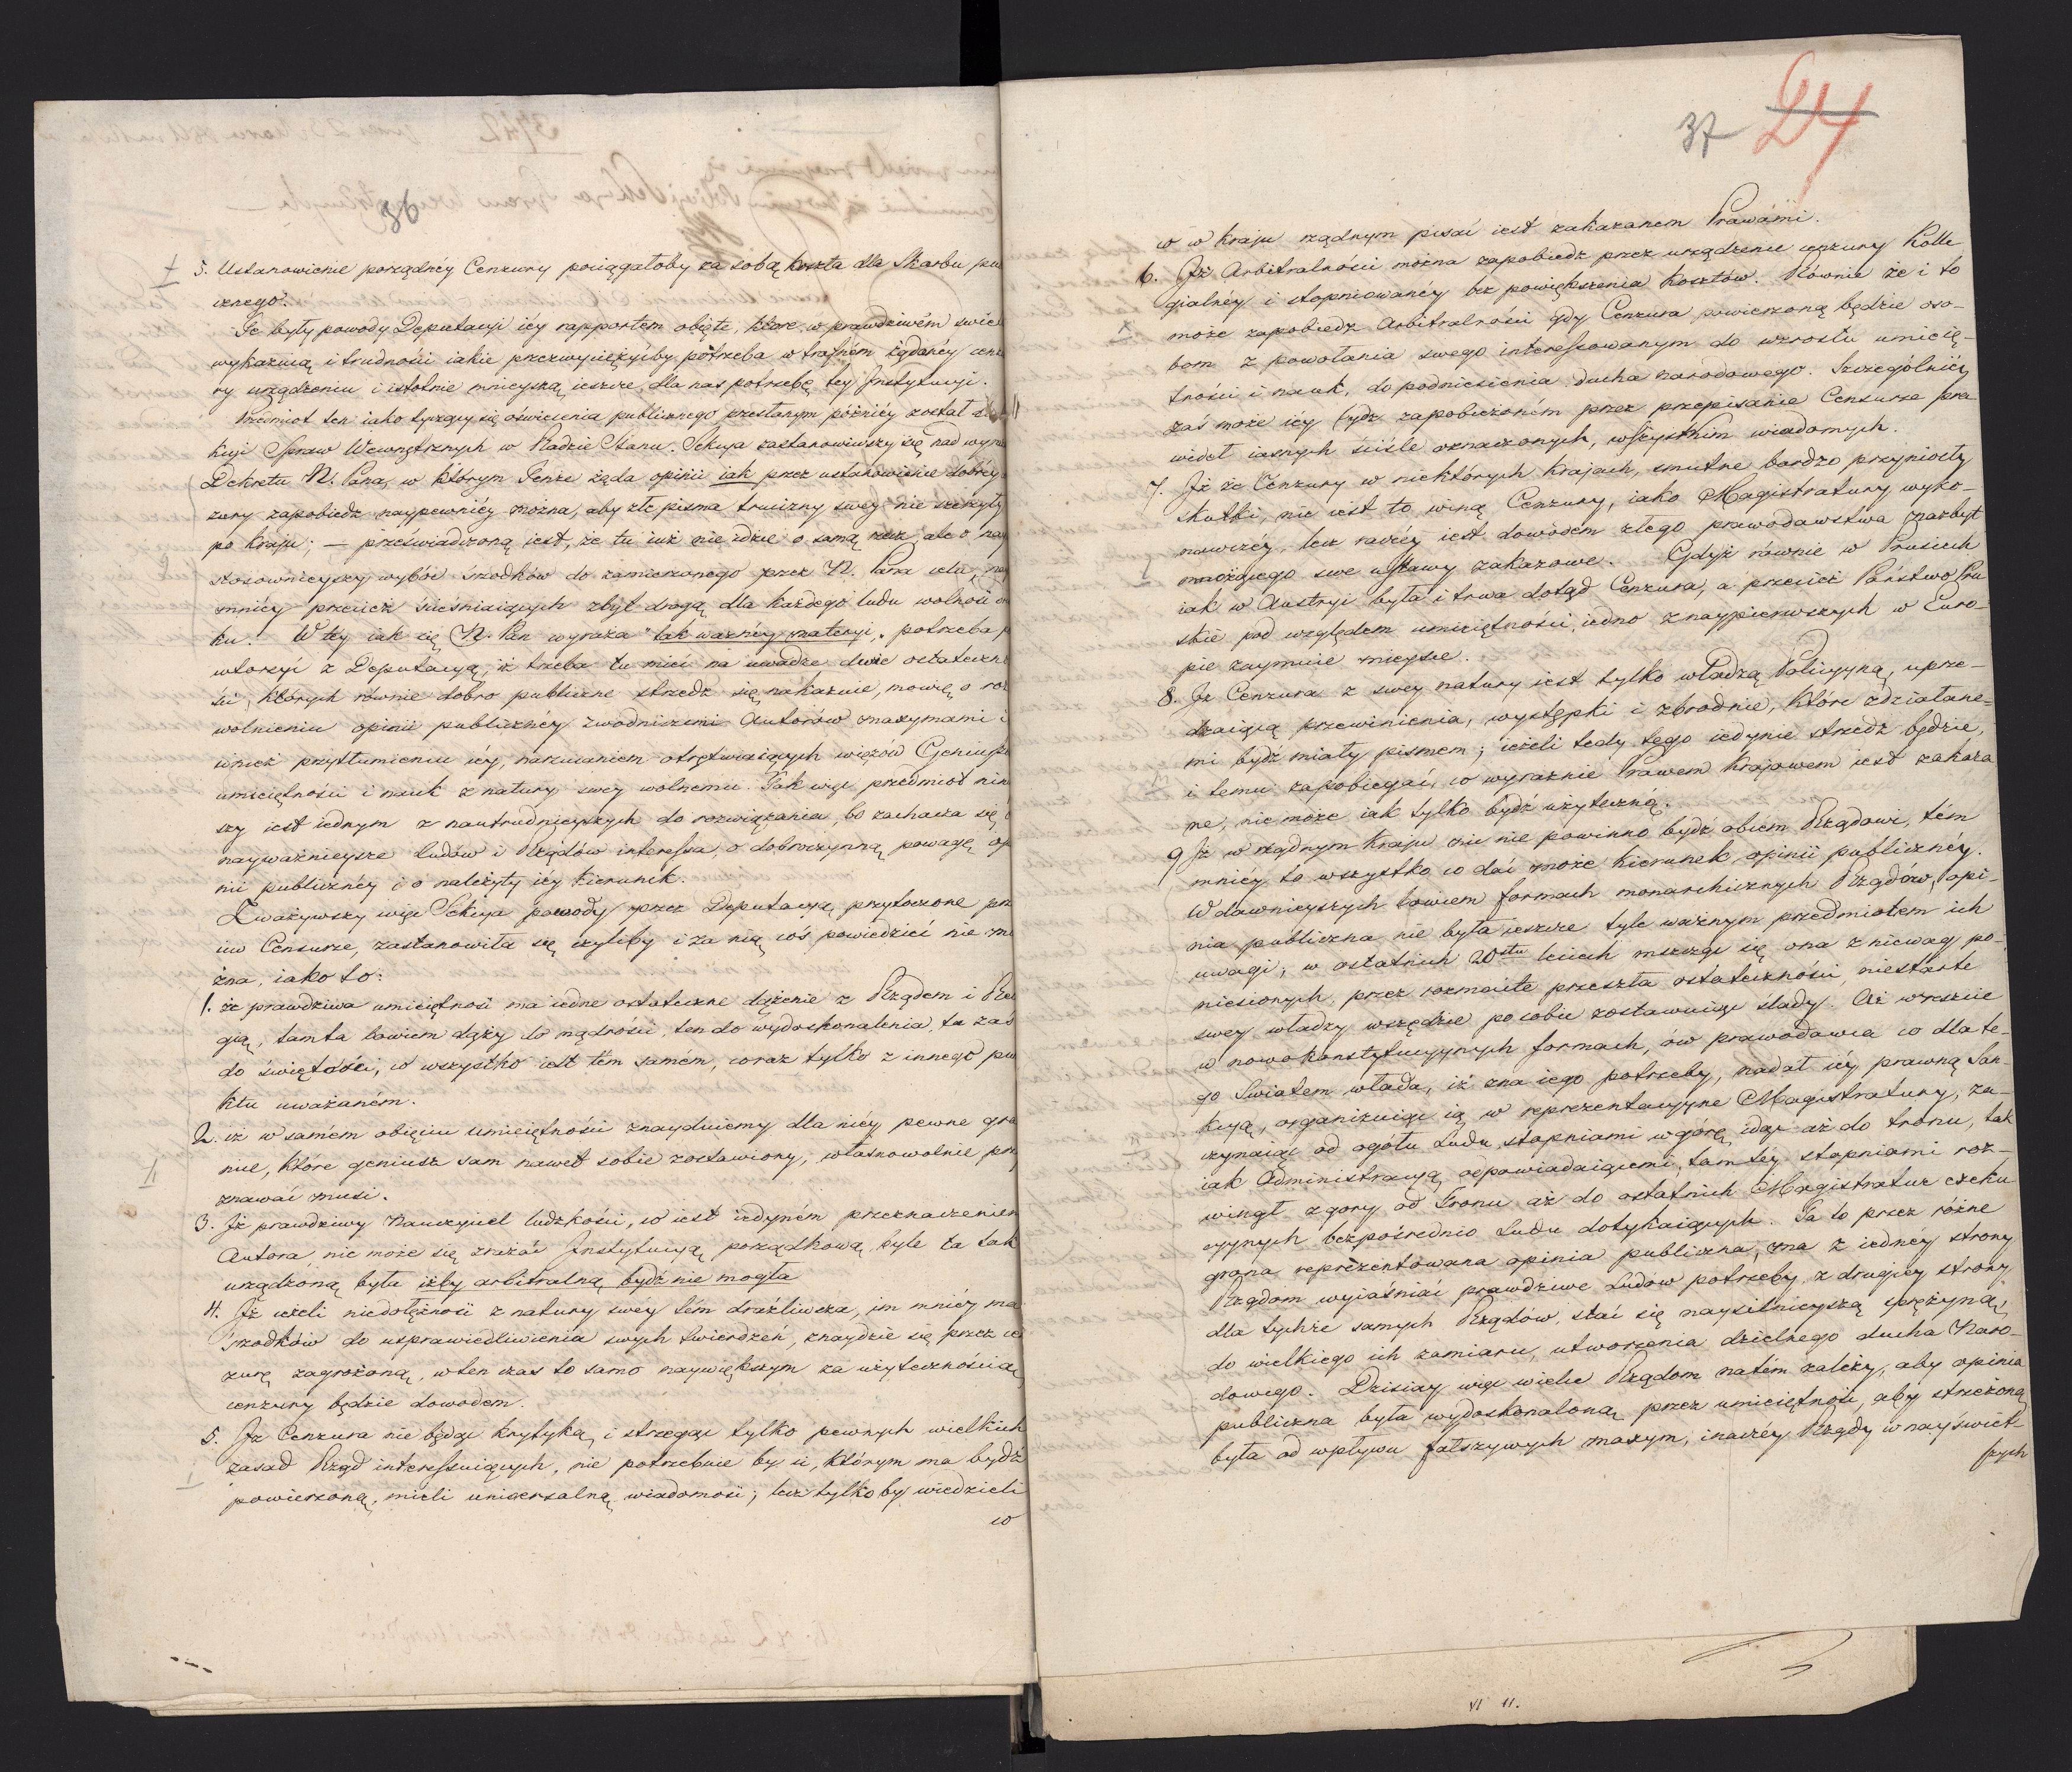 5. Ustanowienie porządnéy Cenzury pociągałoby za sobą koszta dla Skarbu pu
cznego.
Te były powody Deputacyi iéy rapportem obięte, które w prawdziwém świe
wykazuią i trudności iakie przezwyciężyćby potrzeba w trafném żądanéy cen
ry urządzeniu i istotnie mnieyszą ieszcze dla nas potrzebę tey Instytucyi.
Przedmiot ten iako tyczący się oświecenia publicznego przesłanym późniéy został
kcyi Spraw Wewnętrznych w Radzie Stanu. Sekcya zastanowiwszy się nad wyra
Dekretu N. Pana, w którym Tenże żąda opinii iak przez ustanowienie dobréy
zury zapobiedz naypewniéy można, aby złe pisma trucizny swey nie szerzyły
po kraju; — przeświadczoną iest, że tu iuż nie idzie o samą rzecz, ale o nay
stosownieyszy wybór środków do zamierzonego przez N. Pana celu, nay
mniéy przecież ścieśniaiących zbyt drogą dla każdego ludu wolność
ku. W tey iak się N. Pan wyraża "tak ważnéy materyi", potrzeba p
wtorzyć z Deputacyą, iż trzeba tu mieć na uwadze dwie ostateczno
ści, których równie dobro publiczne strzedz się nakazuie, mówię o roz
wolnieniu opinii publicznéy zwodniczemi Autorów maxymami i
ównież przytłumieniu iéy, narzucaniem otrętwiaiących więzów Geniuszo
umieiętności i nauk z natury swey wolnemu. Tak więc przedmiot nin
szy iest iednym z nautrudnieyszych do rozwiązania, bo zachacza się
nayważnieysze ludów i Rządów interessa, o dobroczynną powagę op
nii publicznéy i o należyty iéy kierunek.
Zważywszy więc Sekcya powody przez Deputacyą przytoczone prz
iw Censurze, zastanowiła się czyliby i za nią coś powiedzieć nie mo
żna, iako to:
1. że prawdziwa umieiętność ma iedne ostateczne dążenie z Rządem i Rel
gią, tamta bowiem dąży do mądrości, ten do wydoskonalenia, ta zaś
do świętości, co wszystko iest tém samém, coraz tylko z innego pun
ktu uważaném.
2. iż w samém obięciu umieiętności znayduiemy dla niéy pewne gra
nice, które geniusz sam nawet sobie zostawiony, własnowolnie prz
znawać musi.
3. Iż prawdziwy Nauczyciel ludzkości, co iest iedyném przeznaczeniem
Autora, nie może się zrażać Instytucyą porządkową, byle ta tak
urządzoną była iżby arbitralną bydź nie mogła
4. Iż ieżeli niedołężność z natury swéy tém drażliwsza, im mniéy ma
środków do usprawiedliwienia swych twierdzeń, znaydzie się przez ce
zurę zagrożoną, w ten czas to samo naywiększym za użytecznością
cenzury będzie dowodem.
5. Iż Cenzura nie będąc krytyką, i strzegąc tylko pewnych wielkich
zasad Rząd interessuiących, nie potrzebuie by ci, którym ma bydź
powierzoną, mieli uniwersalną wiadomość; lecz tylko by wiedzieli
co
37 24
co w kraju rządnym pisać iest zakazanem Prawami.
6. Iż Arbitralności można zapobiedz przez urządzenie cenzury Kolle
gialnéy i stopniowanéy bez powiększenia kosztów. Równie że i to
może zapobiedz Arbitralności gdy Cenzura powierzoną będzie oso-
bom z powołania swego interessowanym do wzrostu umieię-
tności i nauk, do podniesienia ducha narodowego. Szczególniéy
zaś może iéy bydź zapobieżoném przez przepisanie Censurze pra
wideł iasnych ściśle oznaczonych, wszystkim wiadomych.
7. Iż że Cenzury w niektórych krajach, smutne bardzo przyniosły
skutki, nie iest to winą Cenzury, iako Magistratury wyko-
nawczéy, lecz raczéy iest dowodem złego prawodawstwa nazbyt
mnożącego swe ustawy zakazowe. Gdyż równie w Prusiech
iak w Austryi była i trwa dotąd Cenzura, a przecież Państwo Pru
skie pod względem umieiętności, iedno z naypierwszych w Euro-
pie zaymuie mieysce.
8. Iż Cenzura z swey natury iest tylko władzą Policyyną, uprze-
dzaiącą przewinienia, występki i zbrodnie, które zdziałane-
mi bydź miały pismem; ieżeli tedy tego iedynie strzedz będzie,
i temu zapobiegać, co wyraźnie Prawem krajowem iest zakaza
ne, nie może iak tylko bydź użyteczną.
9 Iż w rządnym kraju nic nie powinno bydź obcem Rządowi, tém
mniéy to wszystko co dać może kierunek, opinii publicznéy.
W dawnieyszych bowiem formach monarchicznych Rządów, opi-
nia publiczna nie była ieszcze tyle ważnym przedmiotem ich
uwagi, w ostatnich 20stu leciech mszcząc się ona z niewag po-
niesionych, przez rozmaite przeszła ostateczności, niestarte
swey władzy wszędzie po sobie zostawuiąc ślady. Aż wreszcie
w nowokonstytucyynych formach, ów prawodawca co dla te-
go Światem włada, iż zna iego potrzeby, nadał iéy prawną San-
kcyą, organizuiąc ią w reprezentacyyne Magistratury, za-
czynaiąc od ogółu Ludu stopniami w górę idąc aż do tronu, tak
iak Administracyą odpowiadaiącemi tamtéy stopniami roz-
winął z góry od Tronu aż do ostatnich Magistratur exeku
cyynych bezpośrednio Ludu dotykaiących. Ta to przez różne
grona reprezentowana opinia publiczna, ma z iednéy strony
Rządom wyiaśniać prawdziwe Ludów potrzeby, z drugiey strony
dla tychże samych Rządów, stać się naysilnieyszą sprężyną,
do wielkiego ich zamiaru, utworzenia dzielnego ducha Naro-
dowego. Dzisiay więc wiele Rządom na tém zależy, aby opinia
publiczna była wydoskonaloną przez umieiętność, aby strzeżoną
była od wpływu fałszywych maxym, inaczéy Rządy w nayświet-
szych
VI 11.